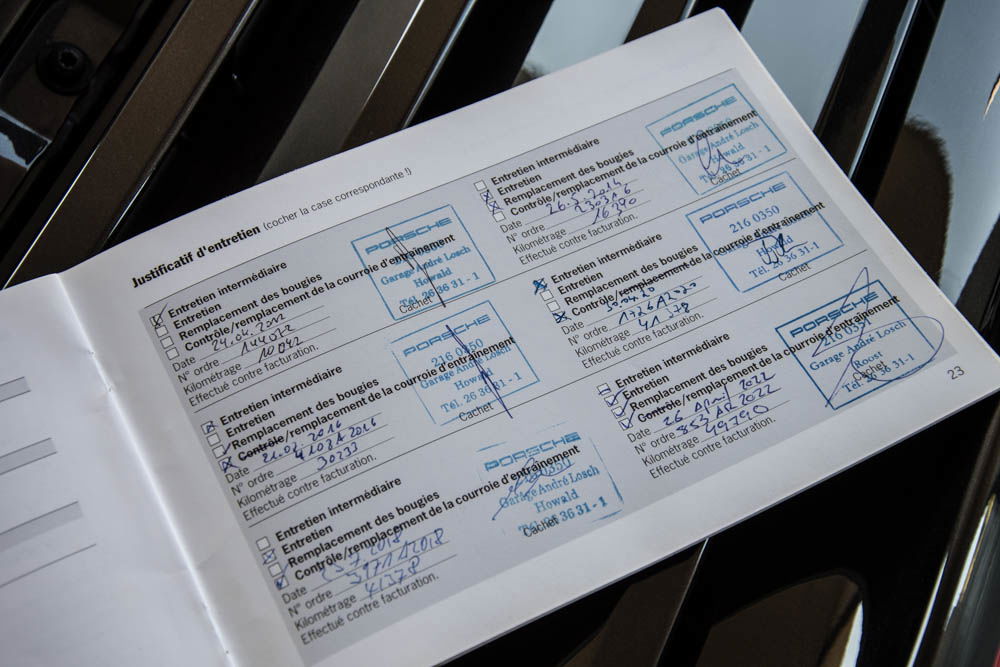 Justificatif d'entretien (cocher la case correspondante !)
Entretien intermédiaire
Entretien
Remplacement des bougies
Contrôle/remplacement de la courroie d'entraînement
Date 24.04.2012
N° ordre 144072
Kilométrage 10042
Effectué contre facturation.
PORSCHE
Garage André Losch
Howald
Tél. 26 36 31 - 1
Cachet
Entretien intermédiaire
Entretien
Remplacement des bougies
Contrôle/remplacement de la courroie d'entraînement
Date
N° ordre
Kilométrage 30233
Effectué contre facturation.
PORSCHE
216 0350
Garage André Losch
Howald
Tél. 26 36 31 - 1
Cachet
Entretien intermédiaire
Entretien
Remplacement des bougies
Contrôle/remplacement de la courroie d'entraînement
Date
N° ordre
Kilométrage 41378
Effectué contre facturation.
PORSCHE
Garage André Losch
Howald
Tél. 26 36 31 - 1
Cachet
Entretien intermédiaire
Entretien
Remplacement des bougies
Contrôle/remplacement de la courroie d'entraînement
Date
N° ordre
Kilométrage 16290
Effectué contre facturation.
PORSCHE
Garage André Losch
Howald
Tél. 26 36 31 - 1
Cachet
Entretien intermédiaire
Entretien
Remplacement des bougies
Contrôle/remplacement de la courroie d'entraînement
Date 30.04.20
N° ordre
Kilométrage 41378
Effectué contre facturation.
PORSCHE
216 0350
Howald
Tél. 26 36 31 - 1
Cachet
Entretien intermédiaire
Entretien
Remplacement des bougies
Contrôle/remplacement de la courroie d'entraînement
Date 26 April 2022
N° ordre
Kilométrage 49790
Effectué contre facturation.
PORSCHE
216 0351
Garage André Losch
Roost
Tél. 26 36 31 - 1
Cachet
23